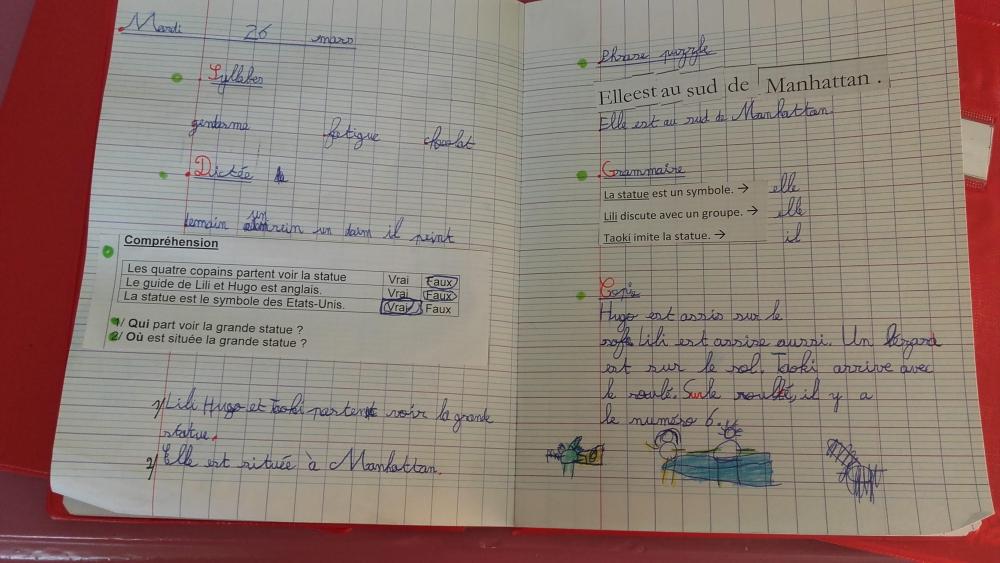 Mardi 26 mars
Syllabes
gendarme fatigue chocolat
Dictée
demain un un daim il peint
Compréhension
Les quatre copains partent voir la statue Vrai Faux
Le guide de Lili et Hugo est anglais. Vrai Faux
La statue est le symbole des Etats-Unis. Vrai Faux
1/ Qui part voir la grande statue ?
2/ Où est située la grande statue ?
1/ Lili Hugo et Taoki partent voir la grande
statue.
2/ Elle est située à Manhattan.
Phrase puzzle
Elle est au sud de Manhattan.
Elle est au sud de Manhattan.
Grammaire
La statue est un symbole. → elle
Lili discute avec un groupe. → elle
Taoki imite la statue. → il
Copie
Hugo est assis sur le
sofa. Lili est assise aussi. Un lézard
est sur le sol. Taoki arrive avec
le roulé. Sur le roulé, il y a
le numéro 6.